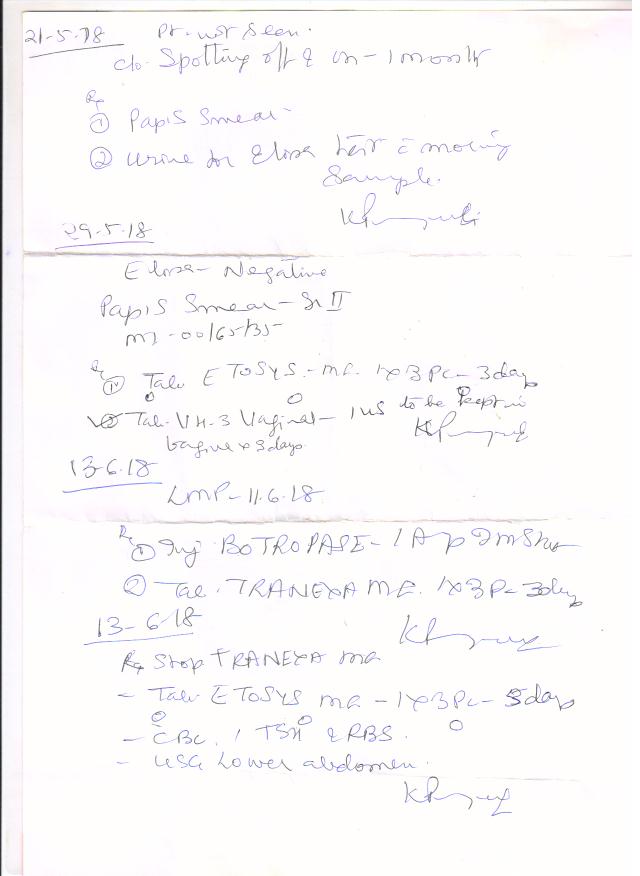 21-5-18
Pt. not Seen.
c/o. Spotting off & on - 1 month
Rx
① Pap's Smear
② Urine for Elisa test c̄ morning
Sample.
29-5-18
Elisa - Negative
Pap's Smear - Gr II
Rx
① Tab ETOSYS - MF. 1x3 PC - 3 days
② Tab. VH-3 Vaginal - 1 HS to be kept in
vagina x 3 days
13-6-18
LMP - 11.6.18
Rx
① Inj BOTROPASE - 1 A
② Tab. TRANEXA MF. 1x3 P - 3 days
13-6-18
Rx Stop TRANEXA MF
- Tab ETOSYS MF - 1x3 PC - 5 days
- CBC, TSH & RBS.
- USG Lower abdomen.